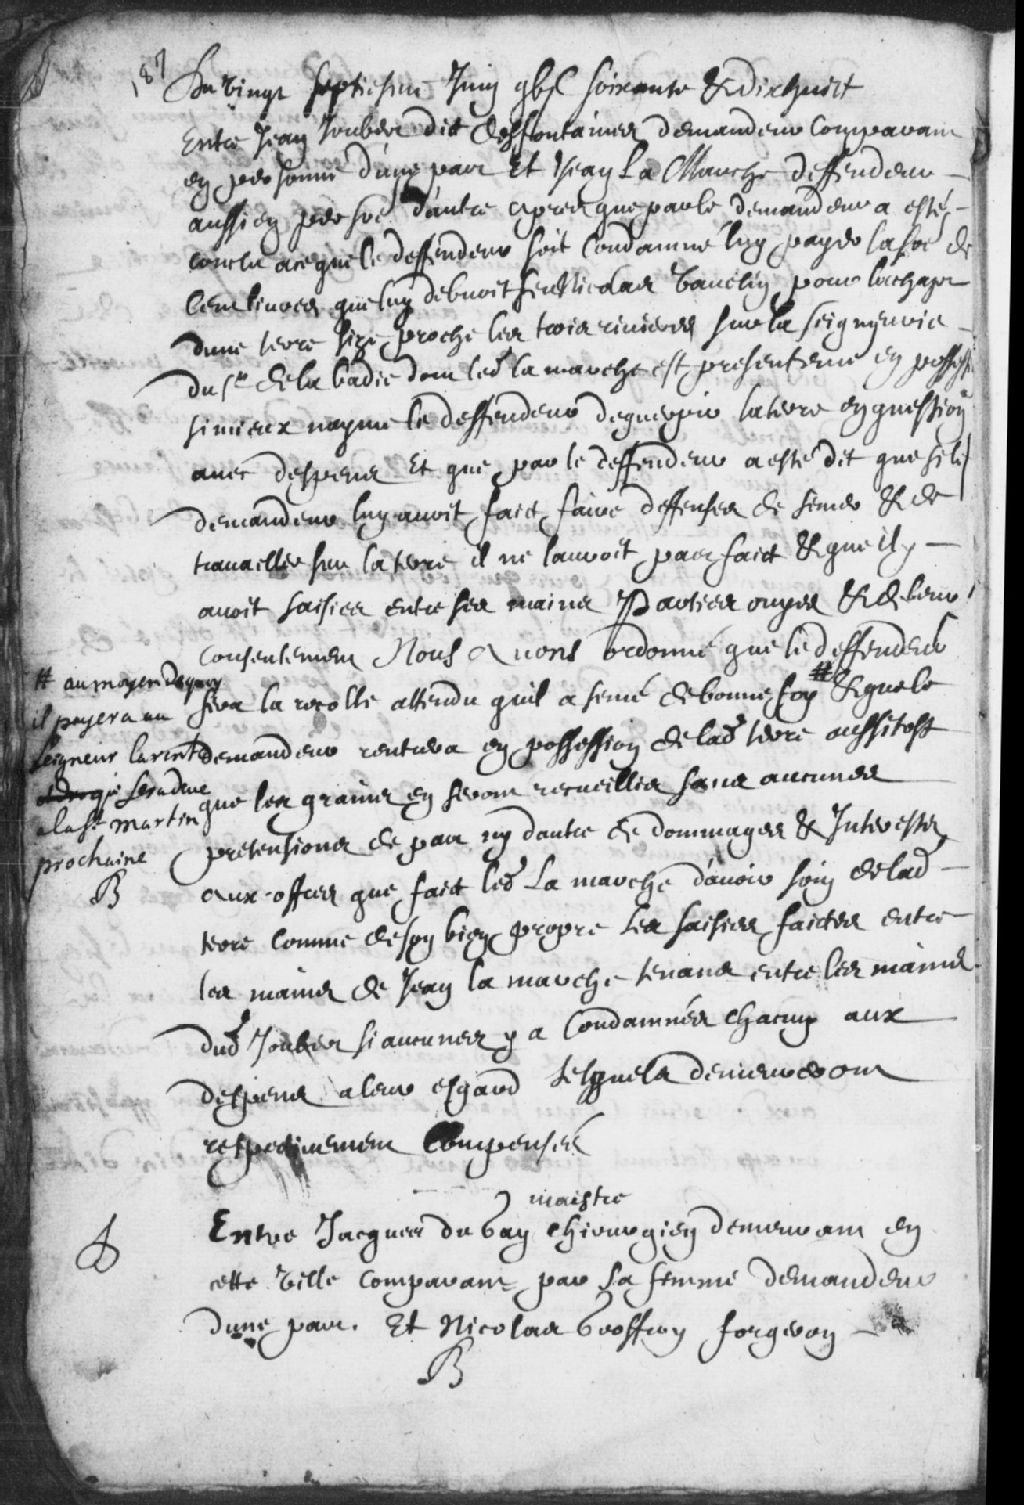 187
Du vingt septiesme Juin gbjc soixante & dixhuict
Entre Jean Joubert dit desfontaines demandeur comparant
en personne d'une part Et Jean La Marche deffendeur
aussi en persoe d'autre apres que par le demandeur a esté
conclu a ce que le deffendeur soit condamné luy payer la soe de
Cent livres que luy debvoit feu Nicolas pour l'achapt
d'une terre size proche les trois rivieres sur la seigneurie
du sr de la badie dont led la marche est presentement en possession
si mieux n'ayme le deffendeur deguerpir la terre en question
avec despens Et que par le deffendeur a esté dit que si le
demandeur luy avoit faict faire deffenses de semer & de
travailler sur la terre il ne l'auroit pas faict & que il y
avoit saisies entre ses mains Parties ouyes & de leur
consentement Nous Avons ordonné que le deffendeur
fera la recolte attendu qu'il a semé de bonne foy # & que le
# au moyen dequoy
il payera au
seigneur la rente
qui sera deue
a la st martin
prochaine
B
demandeur rentrera en possession de lad terre aussitost
que les grains en seront recueillis sans aucunes
pretensions de part ny dautre de dommages & Interests
aux offres que faict led La marche d'avoir soin de lad
terre comme de son bien propre Les saisies faictes entre
les mains de Jean la marche tenans entre les mains
dud Joubert si aucunes y a Condamnés chacun aux
despens a leur esgard lesquels demeureront
respectivement Compensés
Entre Jacques du gay maistre chirurgien demeurant en
cette ville comparant par sa femme demandeur
d'une part. Et Nicolas Geoffroy forgeron
B